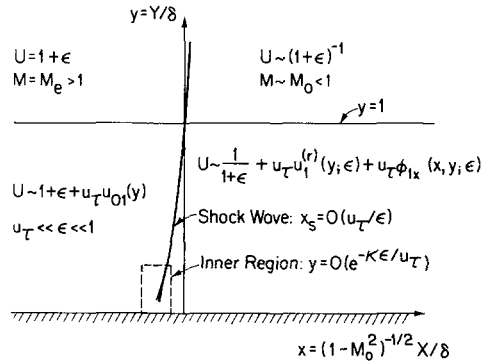 y=Y/δ
U=1+ϵ
M=Mₑ>1
U∼(1+ϵ)⁻¹
M∼M₀<1
y=1
U∼1+ϵ+u_τu₀₁(y)
u_τ<<ϵ<<1
U∼ 1/(1+ϵ) + u_τu₁⁽ʳ⁾(y;ϵ)+u_τϕ₁ₓ(x,y;ϵ)
Shock Wave: xₛ=O(u_τ/ϵ)
Inner Region: y=O(e^{-κϵ/u_τ})
x=(1-M₀²)^{-1/2} X/δ